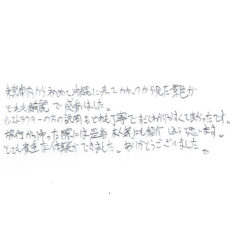 東京から初めて沖縄に来てカヤックから見た景色が
とても綺麗で感動しました。
インストラクターの方の説明もとても丁寧でまたわかりやすくて良かったです。
旅行から帰った際には是非友人にも紹介しようと思います。
とても貴重な体験ができました。ありがとうございました。